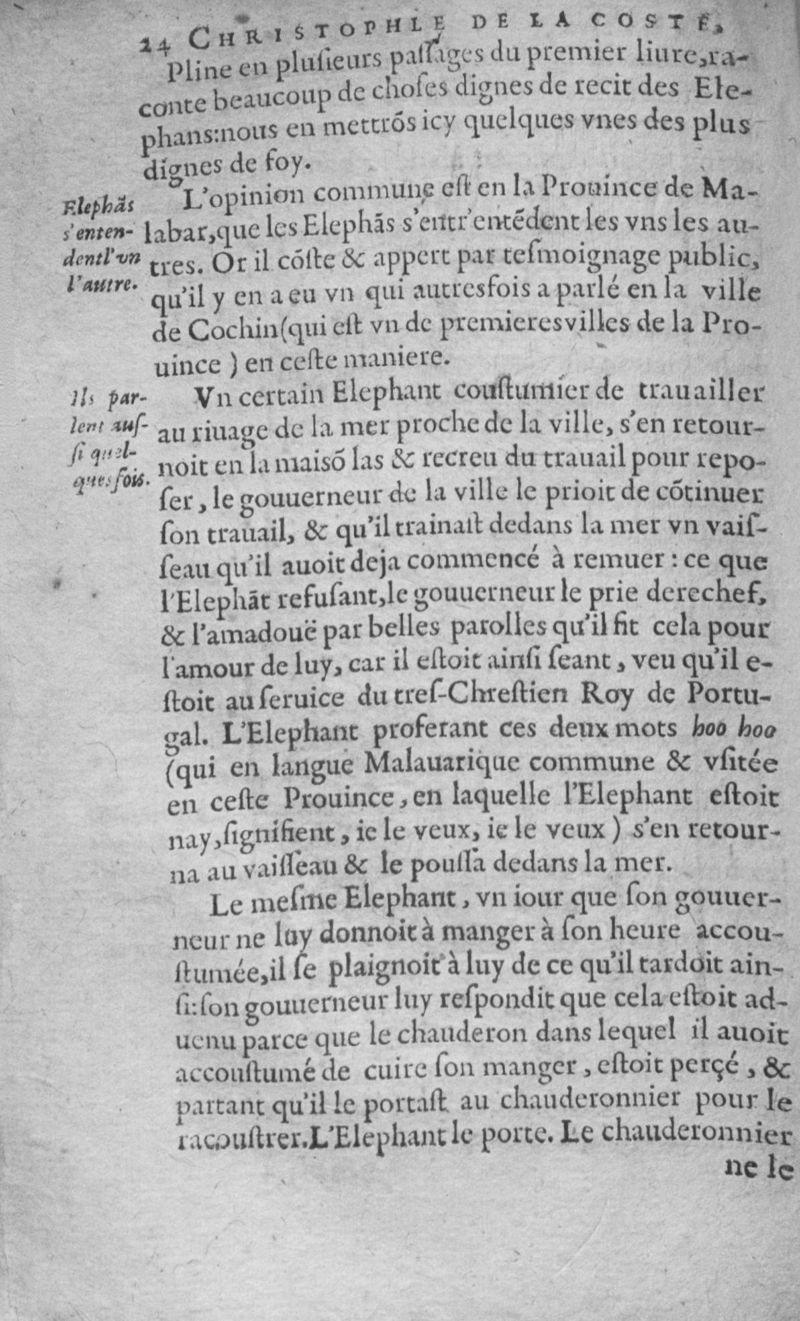 24 CHRISTOPHLE DE LA COSTE,
Pline en pluſieurs paſſages du premier liure, ra-
conte beaucoup de choſes dignes de recit des Ele-
phans: nous en mettrõs icy quelques vnes des plus
dignes de foy.
Elephãs s'enten-dent l'vn l'autre.
L'opinion commune eſt en la Prouince de Ma-
labar, que les Elephãs s'entr'entẽdent les vns les au-
tres. Or il cõſte & appert par teſmoignage public,
qu'il y en a eu vn qui autresfois a parlé en la ville
de Cochin (qui eſt vn de premieres villes de la Pro-
uince ) en ceſte maniere.
Ils par-lent auſ-ſi quel-quesfois.
Vn certain Elephant couſtumier de trauailler
au riuage de la mer proche de la ville, s'en retour-
noit en la maisõ las & recreu du trauail pour repo-
ſer, le gouuerneur de la ville le prioit de cõtinuer
ſon trauail, & qu'il trainaſt dedans la mer vn vaiſ-
ſeau qu'il auoit deja commencé à remuer : ce que
l'Elephãt refuſant, le gouuerneur le prie derechef,
& l'amadouë par belles parolles qu'il fit cela pour
l'amour de luy, car il eſtoit ainſi ſeant, veu qu'il e-
ſtoit au ſeruice du treſ-Chreſtien Roy de Portu-
gal. L'Elephant proferant ces deux mots hoo hoo
(qui en langue Malauarique commune & vſitée
en ceſte Prouince, en laquelle l'Elephant eſtoit
nay, ſignifient, ie le veux, ie le veux ) s'en retour-
na au vaiſſeau & le pouſſa dedans la mer.
Le meſme Elephant, vn iour que ſon gouuer-
neur ne luy donnoit à manger à ſon heure accou-
ſtumée, il ſe plaignoit à luy de ce qu'il tardoit ain-
ſi: ſon gouuerneur luy reſpondit que cela eſtoit ad-
uenu parce que le chauderon dans lequel il auoit
accouſtumé de cuire ſon manger, eſtoit perçé, &
partant qu'il le portaſt au chauderonnier pour le
racouſtrer. L'Elephant le porte. Le chauderonnier
ne le